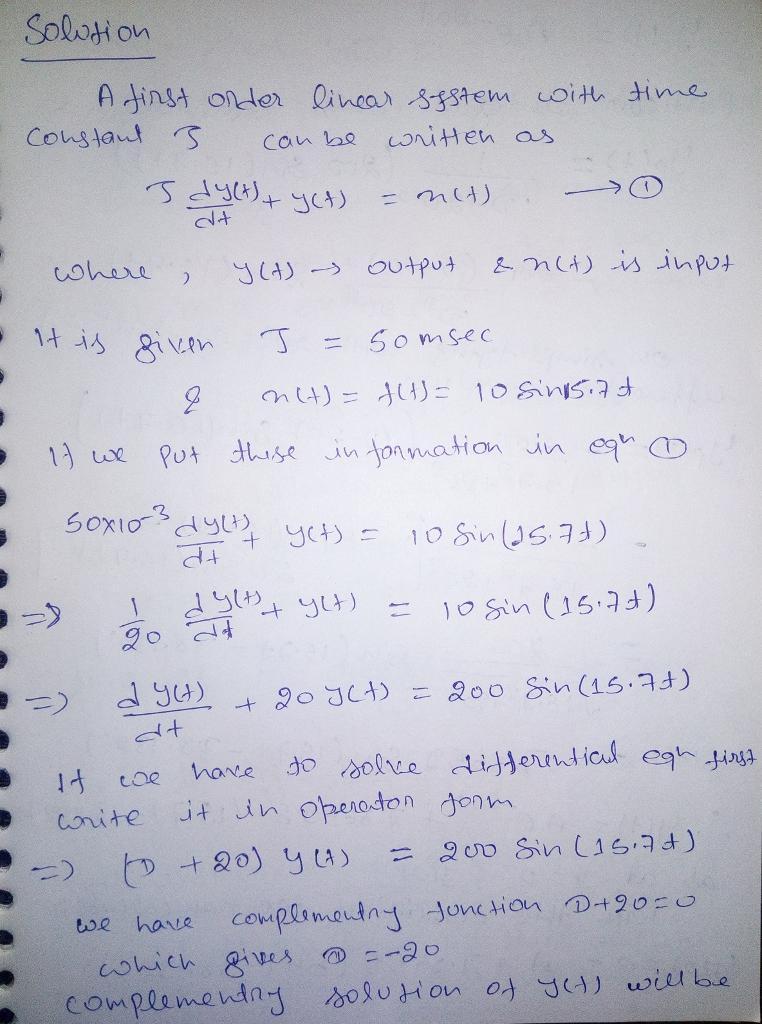 Solution
A first order linear system with time
constant τ can be written as
τ dy(t)/dt + y(t) = x(t) → ①
where , y(t) → output & x(t) is input
It is given τ = 50 msec
& x(t) = f(t) = 10 Sin15.7t
If we put these information in eqn ①
50x10-3 dy(t)/dt + y(t) = 10 Sin(15.7t)
=> 1/20 dy(t)/dt + y(t) = 10 Sin (15.7t)
=> dy(t)/dt + 20 y(t) = 200 Sin(15.7t)
If we have to solve differential eqn first
write it in operator form
=> (D + 20) y(t) = 200 Sin (15.7t)
we have complementry function D+20=0
which gives D = -20
complementry solution of y(t) will be